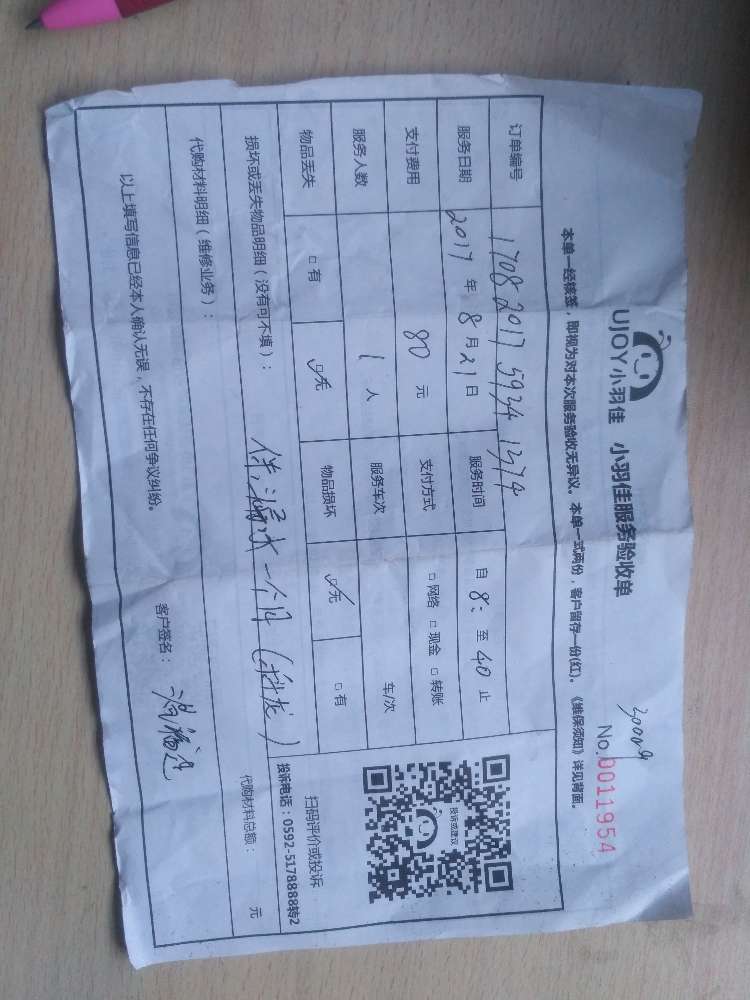 30009
UJOY小羽佳 小羽佳服务验收单
No.0011954
本单一经核签，即视为对本次服务验收无异议。本单一式两份，客户留存一份(红)。《维保须知》详见背面。
订单编号 1708 2017 5934 1374
服务日期 2017 年 8 月 21 日 服务时间 自 8: 至 40 止
支付费用 80 元 支付方式 □ 网络 □ 现金 □ 转账
服务人数 1 人 服务车次 车/次
物品丢失 □ 有 ☑ 无 物品损坏 ☑ 无 □ 有
投诉或建议
扫码评价或投诉
投诉电话：0592-5178888转2
损坏或丢失物品明细（没有可不填）：
一个
代购材料明细（维修业务）： 代购材料总额： 元
以上填写信息已经本人确认无误，不存在任何争议纠纷。 客户签名：